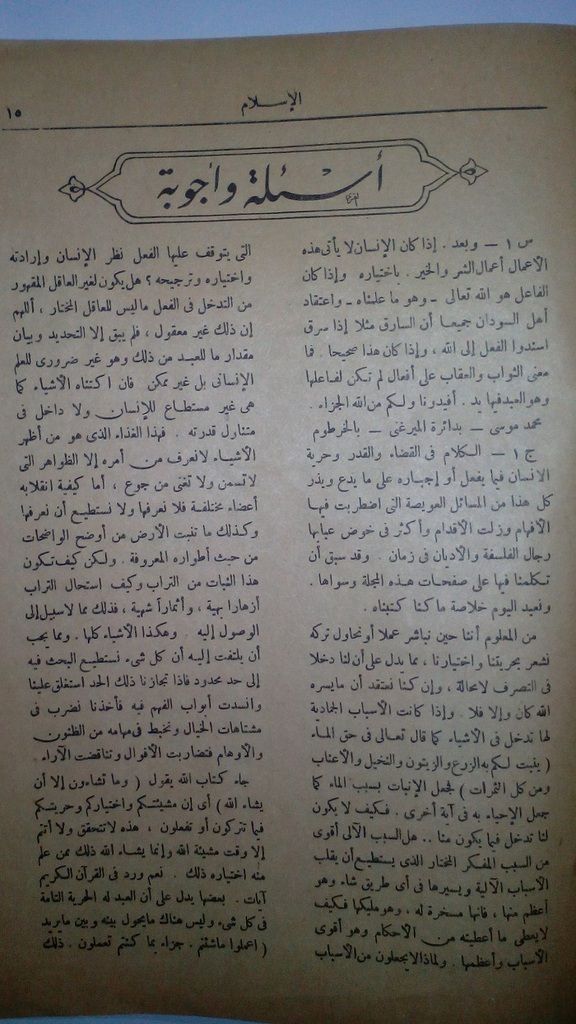 الإسلام
١٥
أسئلة وأجوبة
س ١ — وبعد . إذا كان الإنسان لا يأتى هذه
الأعمال أعمال الشر والخير . باختياره وإذا كان
الفاعل هو الله تعالى – وهو ما علمناه – واعتقاد
أهل السودان جميعا أن السارق مثلا إذا سرق
اسندوا الفعل إلى الله ، وإذا كان هذا صحيحا . فا
معنى الثواب والعقاب على أفعال لم تكن لفاعلها
وهو العبد فيها يد . أفيدونا ولكم من الله الجزاء .
محمد موسى — بدائرة الميرغنى — بالخرطوم
ج ١ — الكلام فى القضاء والقدر وحرية
الانسان فيما يفعل أو إجباره على ما يدع ويذر
كل هذا من المسائل العويصة التى اضطربت فيها
الأفهام وزلت الأقدام وأكثر فى خوض عبابها
رجال الفلسفة والأديان فى زمان . وقد سبق أن
تكلمنا فيها على صفحات هذه المجلة وسواها .
ونعيد اليوم خلاصة ما كنا كتبناه .
من المعلوم أننا حين نباشر عملا أو نحاول تركه
نشعر بحريتنا واختيارنا ، مما يدل على أن لنا دخلا
فى التصرف لا محالة . وإن كنا نعتقد أن ما يسره
الله كان وإلا فلا . وإذا كانت الأسباب الجمادية
لها تدخل فى الأشياء كما قال تعالى فى حق الماء
( ينبت لكم به الزرع والزيتون والنخيل والأعناب
ومن كل الثمرات ) فجعل الإنبات بسبب الماء كما
جعل الإحياء به فى آية أخرى . فكيف لا يكون
لنا تدخل فيما يكون منا .. هل السبب الآلى أقوى
من السبب المفكر المختار الذى يستطيع أن يقلب
الأسباب الآلية ويسيرها فى أى طريق شاء وهو
أعظم منها ، فانها مسخرة له . وهو مليكها فكيف
لا يعطى ما أعطيته من الأحكام وهو أقوى
الأسباب وأعظمها . ولماذا لا يجعلون من الأسباب
التى يتوقف عليها الفعل نظر الإنسان وإرادته
واختياره وترجيحه ؟ هل يكون لغير العاقل المقهور
من التدخل فى الفعل ما ليس للعاقل المختار . أللهم
إن ذلك غير معقول ، فلم يبق إلا التحديد وبيان
مقدار ما للعبد من ذلك وهو غير ضرورى للعلم
الإنسانى بل غير ممكن فان اكتناه الأشياء كما
هى غير مستطاع للإنسان ولا داخل فى
متناول قدرته . فهذا الغذاء الذى هو من أظهر
الأشياء لا نعرف من أمره إلا الظواهر التى
لا تسمن ولا تغنى من جوع . أما كيفية انقلابه
أعضاء مختلفة فلا نعرفها ولا نستطيع أن نعرفها
وكذلك ما تنبت الأرض من أوضح الواضحات
من حيث أطواره المعروفة . ولكن كيف تكون
هذا النبات من التراب وكيف استحال التراب
أزهارا بهية ، وأثمارا شهية ، فذلك مما لا سبيل إلى
الوصول إليه . وهكذا الأشياء كلها . ومما يجب
أن يلتفت إليه أن كل شىء نستطيع البحث فيه
إلى حد محدود فاذا تجاوزنا ذلك الحد استغلق علينا
وانسدت أبواب الفهم فيه فأخذنا نضرب فى
مشتاهات الخيال ونخبط فى مهامه من الظنون
والأوهام فتضاربت الأقوال وتناقضت الآراء .
جاء كتاب الله يقول ( وما تشاءون إلا أن
يشاء الله ) أى إن مشيئتكم واختياركم وحريتكم
فيما تتركون أو تفعلون ، هذه لا تتحقق ولا أتم
إلا وقت مشيئة الله وإنما يشاء الله ذلك ممن علم
منه اختياره ذلك . نعم ورد فى القرآن الكريم
آيات . بعضها يدل على أن العبد له الحرية التامة
فى كل شىء وليس هناك ما يحول بينه وبين ما يريد
( اعملوا ما شئتم . جزاء بما كنتم تعملون . ذلك